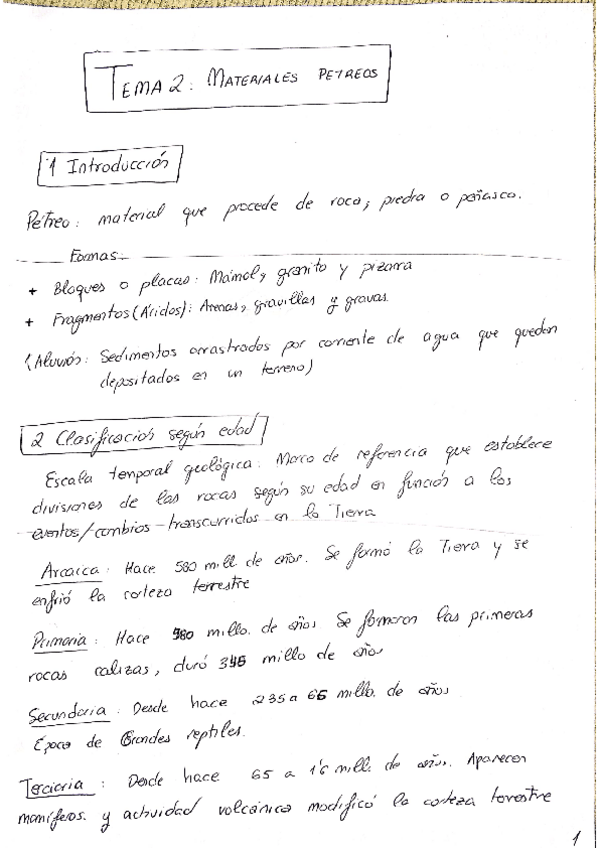 TEMA 2: MATERIALES PETREOS
1 Introducción
Pétreo: material que procede de roca, piedra o peñasco.
Formas:
+ Bloques o placas: Mármol, granito y pizarra
+ Fragmentos (Áridos): Arenas, gravillas y gravas.
(Aluvión: Sedimentos arrastrados por corriente de agua que quedan
depositados en un terreno)
2 Clasificación según edad
Escala temporal geológica: Marco de referencia que establece
divisiones de las rocas según su edad en función a los
eventos/cambios transcurridos en la Tierra
Arcaica: Hace 580 mill de años. Se formó la Tierra y se
enfrió la corteza terrestre
Primaria: Hace 580 millo. de años Se formaron las primeras
rocas calizas, duró 345 millo de años
Secundaria: Desde hace 235 a 65 millo. de años
Época de Grandes reptiles.
Terciaria: Desde hace 65 a 1'6 mill. de años. Aparecen
mamíferos y actividad volcánica modificó la corteza terrestre
1